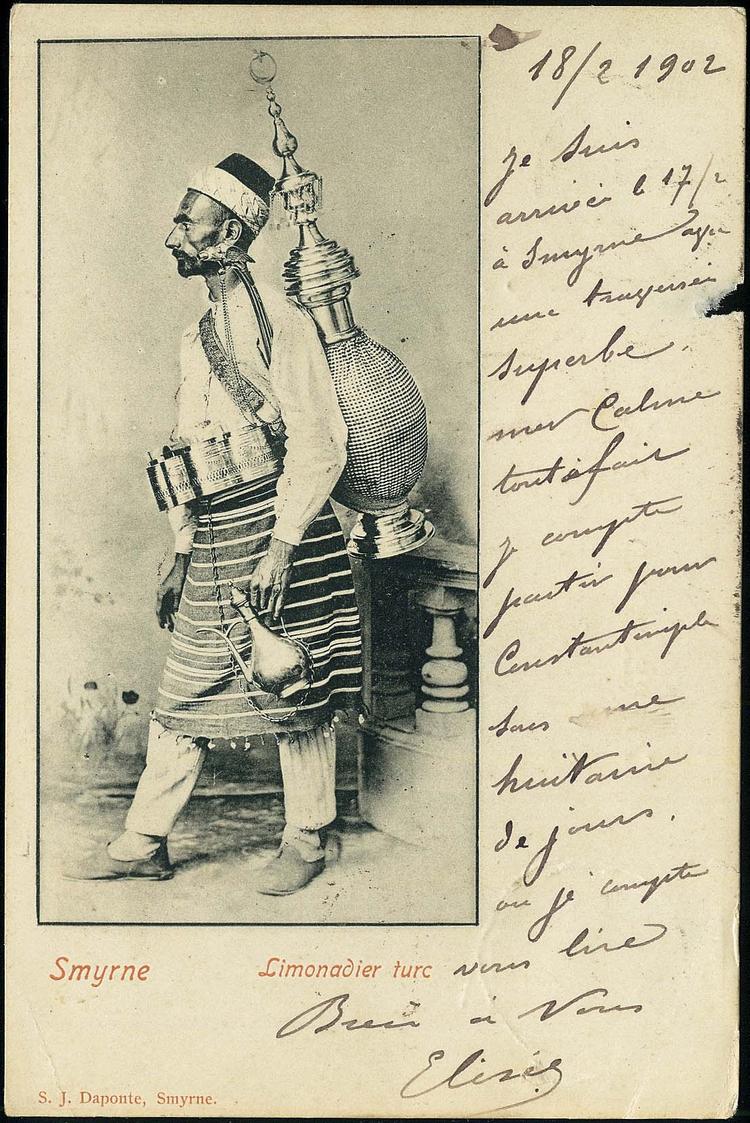 18/2 1902
Je suis
arrivée le 17/2
à Smyrne
une traversée
superbe.
mer Calme
tout à fait
je compte
partir pour
Constantinople
sous une
huitaine
de jours.
ou je compte
vous lire
Bien à Vous
Smyrne
Limonadier turc
S. J. Daponte, Smyrne.